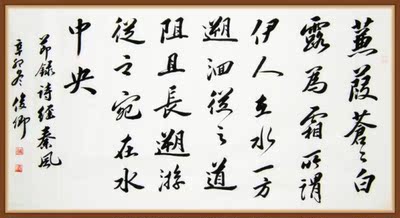 蒹葭蒼〻白
露為霜所謂
伊人在水一方
遡洄從之道
阻且長遡游
從之宛在水
中央
節錄诗經秦風
辛卯冬俊卿